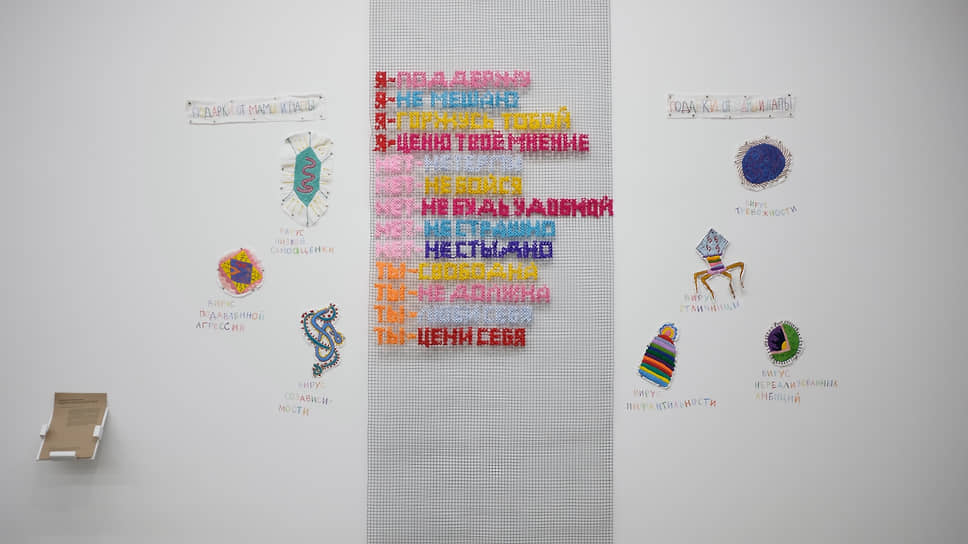 ПОДАРКИ ОТ МАМЫ И ПАПЫ
ВИРУС
НИЗКОЙ
САМООЦЕНКИ
ВИРУС
ПОДАВЛЕННОЙ
АГРЕССИИ
ВИРУС
СОЗАВИСИ-
МОСТИ
Я-ПОДДЕРЖУ
Я-НЕ МЕШАЮ
Я-ГОРЖУСЬ ТОБОЙ
Я-ЦЕНЮ ТВОЁ МНЕНИЕ
НЕТ-
НЕТ-НЕ БОЙСЯ
НЕТ-НЕ БУДЬ УДОБНОЙ
НЕТ-НЕ СТРАШНО
НЕТ-НЕ СТЫДНО
ТЫ-СВОБОДНА
ТЫ-НЕ ДОЛЖНА
ТЫ-ЛЮБИ СЕБЯ
ТЫ-ЦЕНИ СЕБЯ
ПОДАРКИ ОТ МАМЫ И ПАПЫ
ВИРУС
ТРЕВОЖНОСТИ
ВИРУС
ОТЛИЧНИЦЫ
ВИРУС
ИНФАНТИЛЬНОСТИ
ВИРУС
НЕРЕАЛИЗОВАННЫХ
АМБИЦИЙ